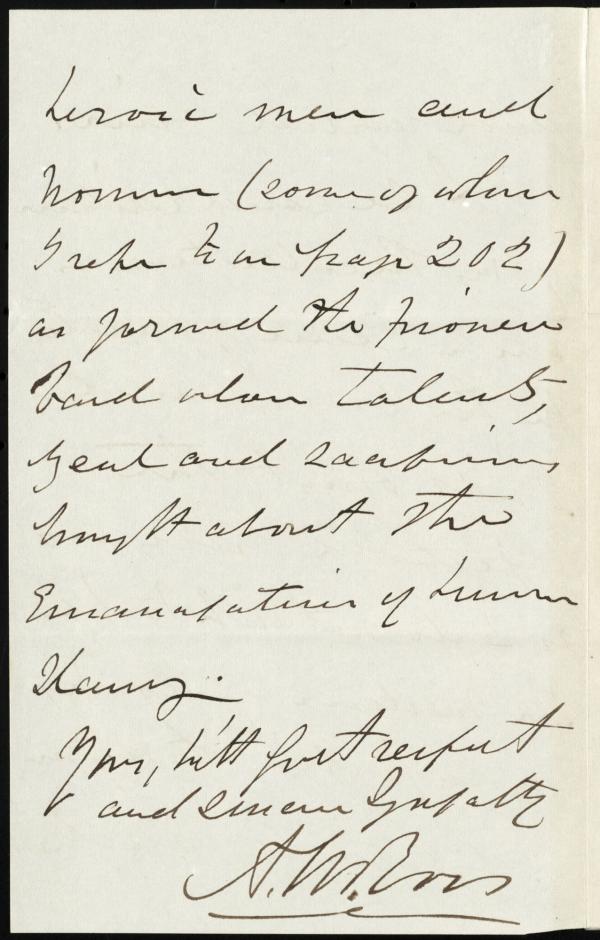 heroic men and
women (some of whom
I refer to on page 202)
as formed the pioneer
band whose talents,
zeal and sacrifices
brought about the
Emancipation of human
Slaves.
Yours, with great respect
and sincere Sympathy